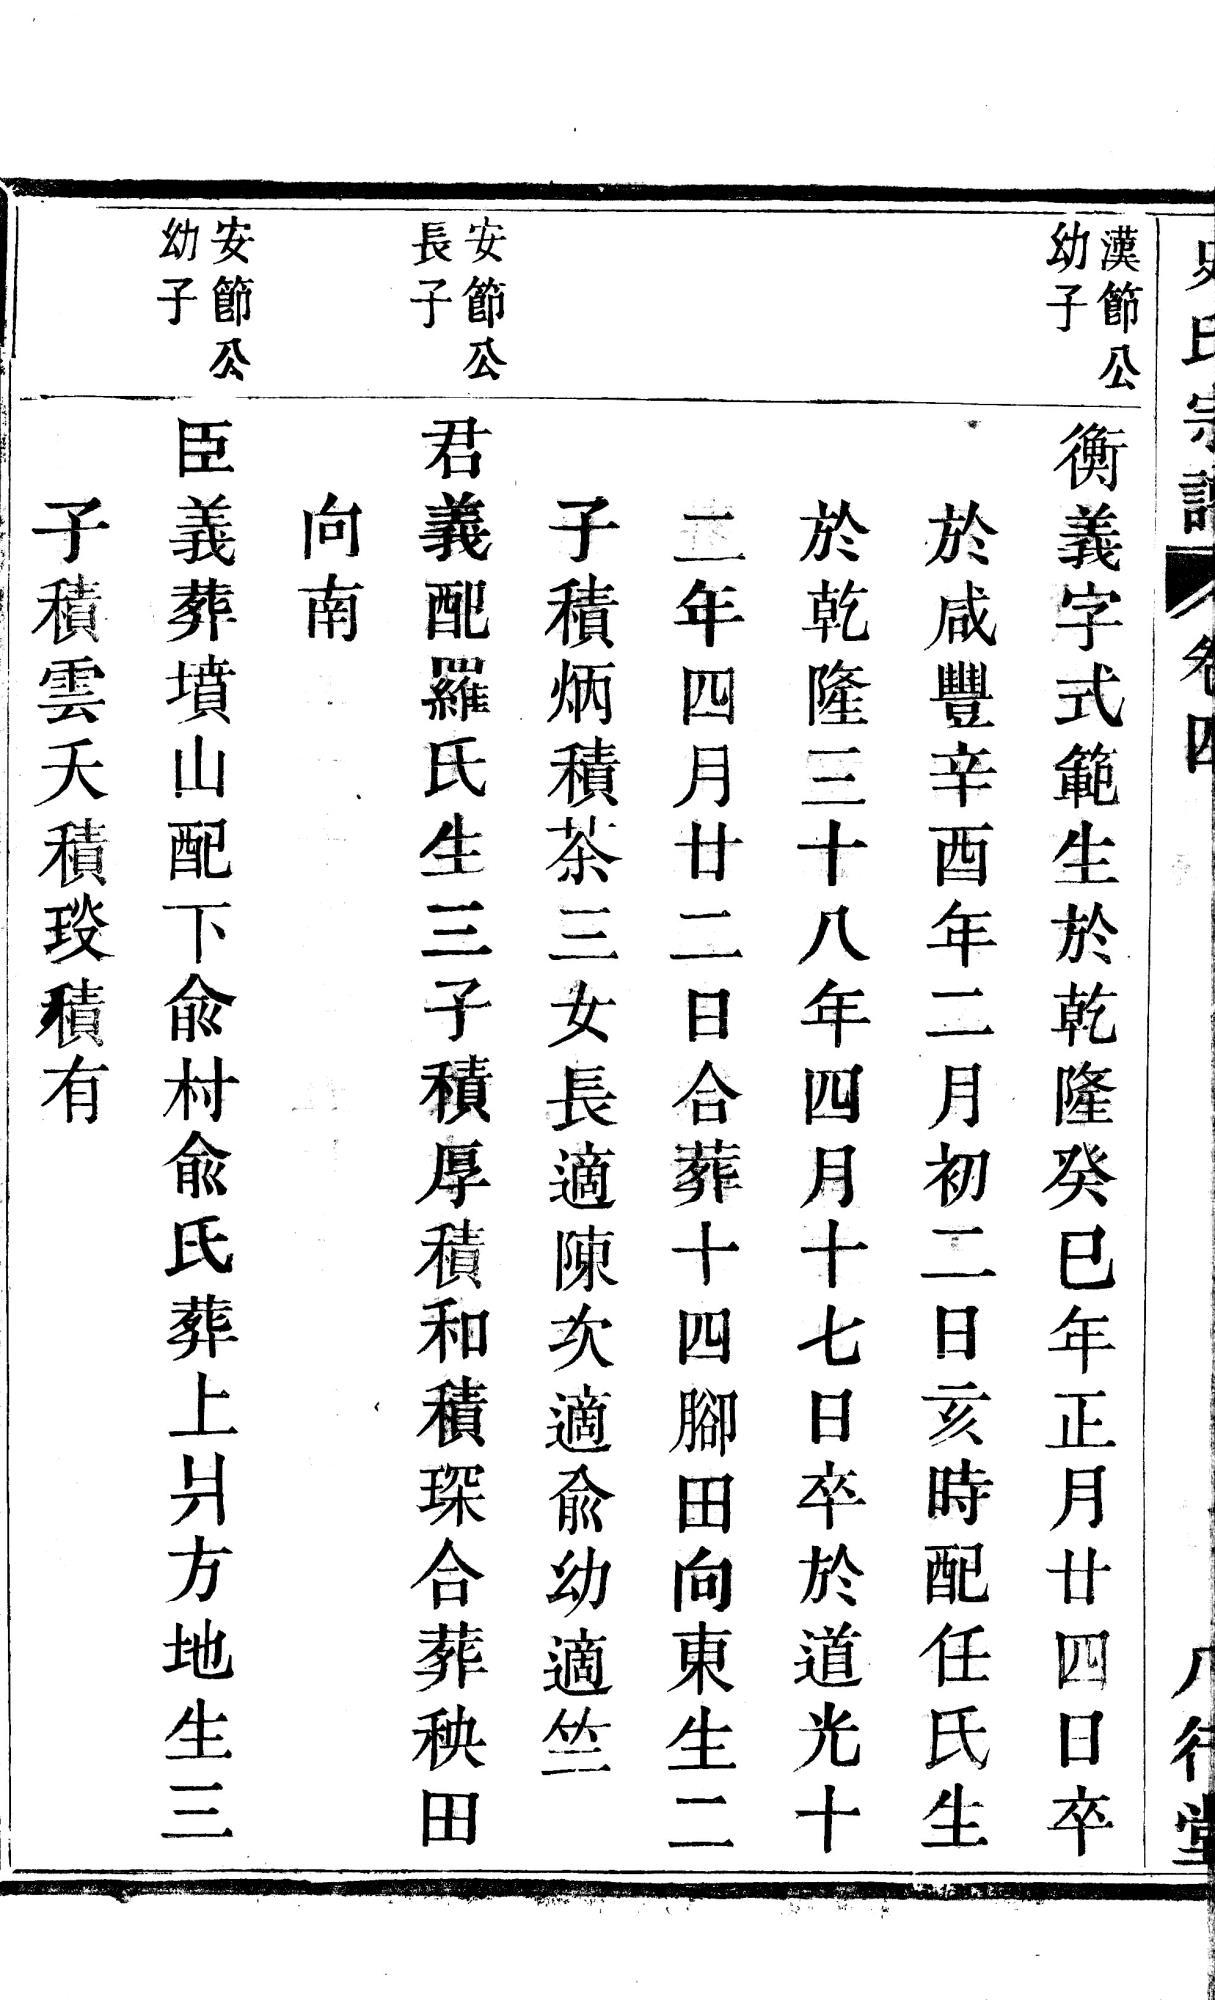 史氏宗譜 卷四 八行堂
漢節公
幼子
衡義字式範生於乾隆癸巳年正月廿四日卒
於咸豐辛酉年二月初二日亥時配任氏生
於乾隆三十八年四月十七日卒於道光十
二年四月廿二日合葬十四腳田向東生二
子積炳積茶三女長適陳次適俞幼適竺
安節公
長子
君義配羅氏生三子積厚積和積琛合葬秧田
向南
安節公
幼子
臣義葬墳山配下俞村俞氏葬上爿方地生三
子積雲夭積琰積有